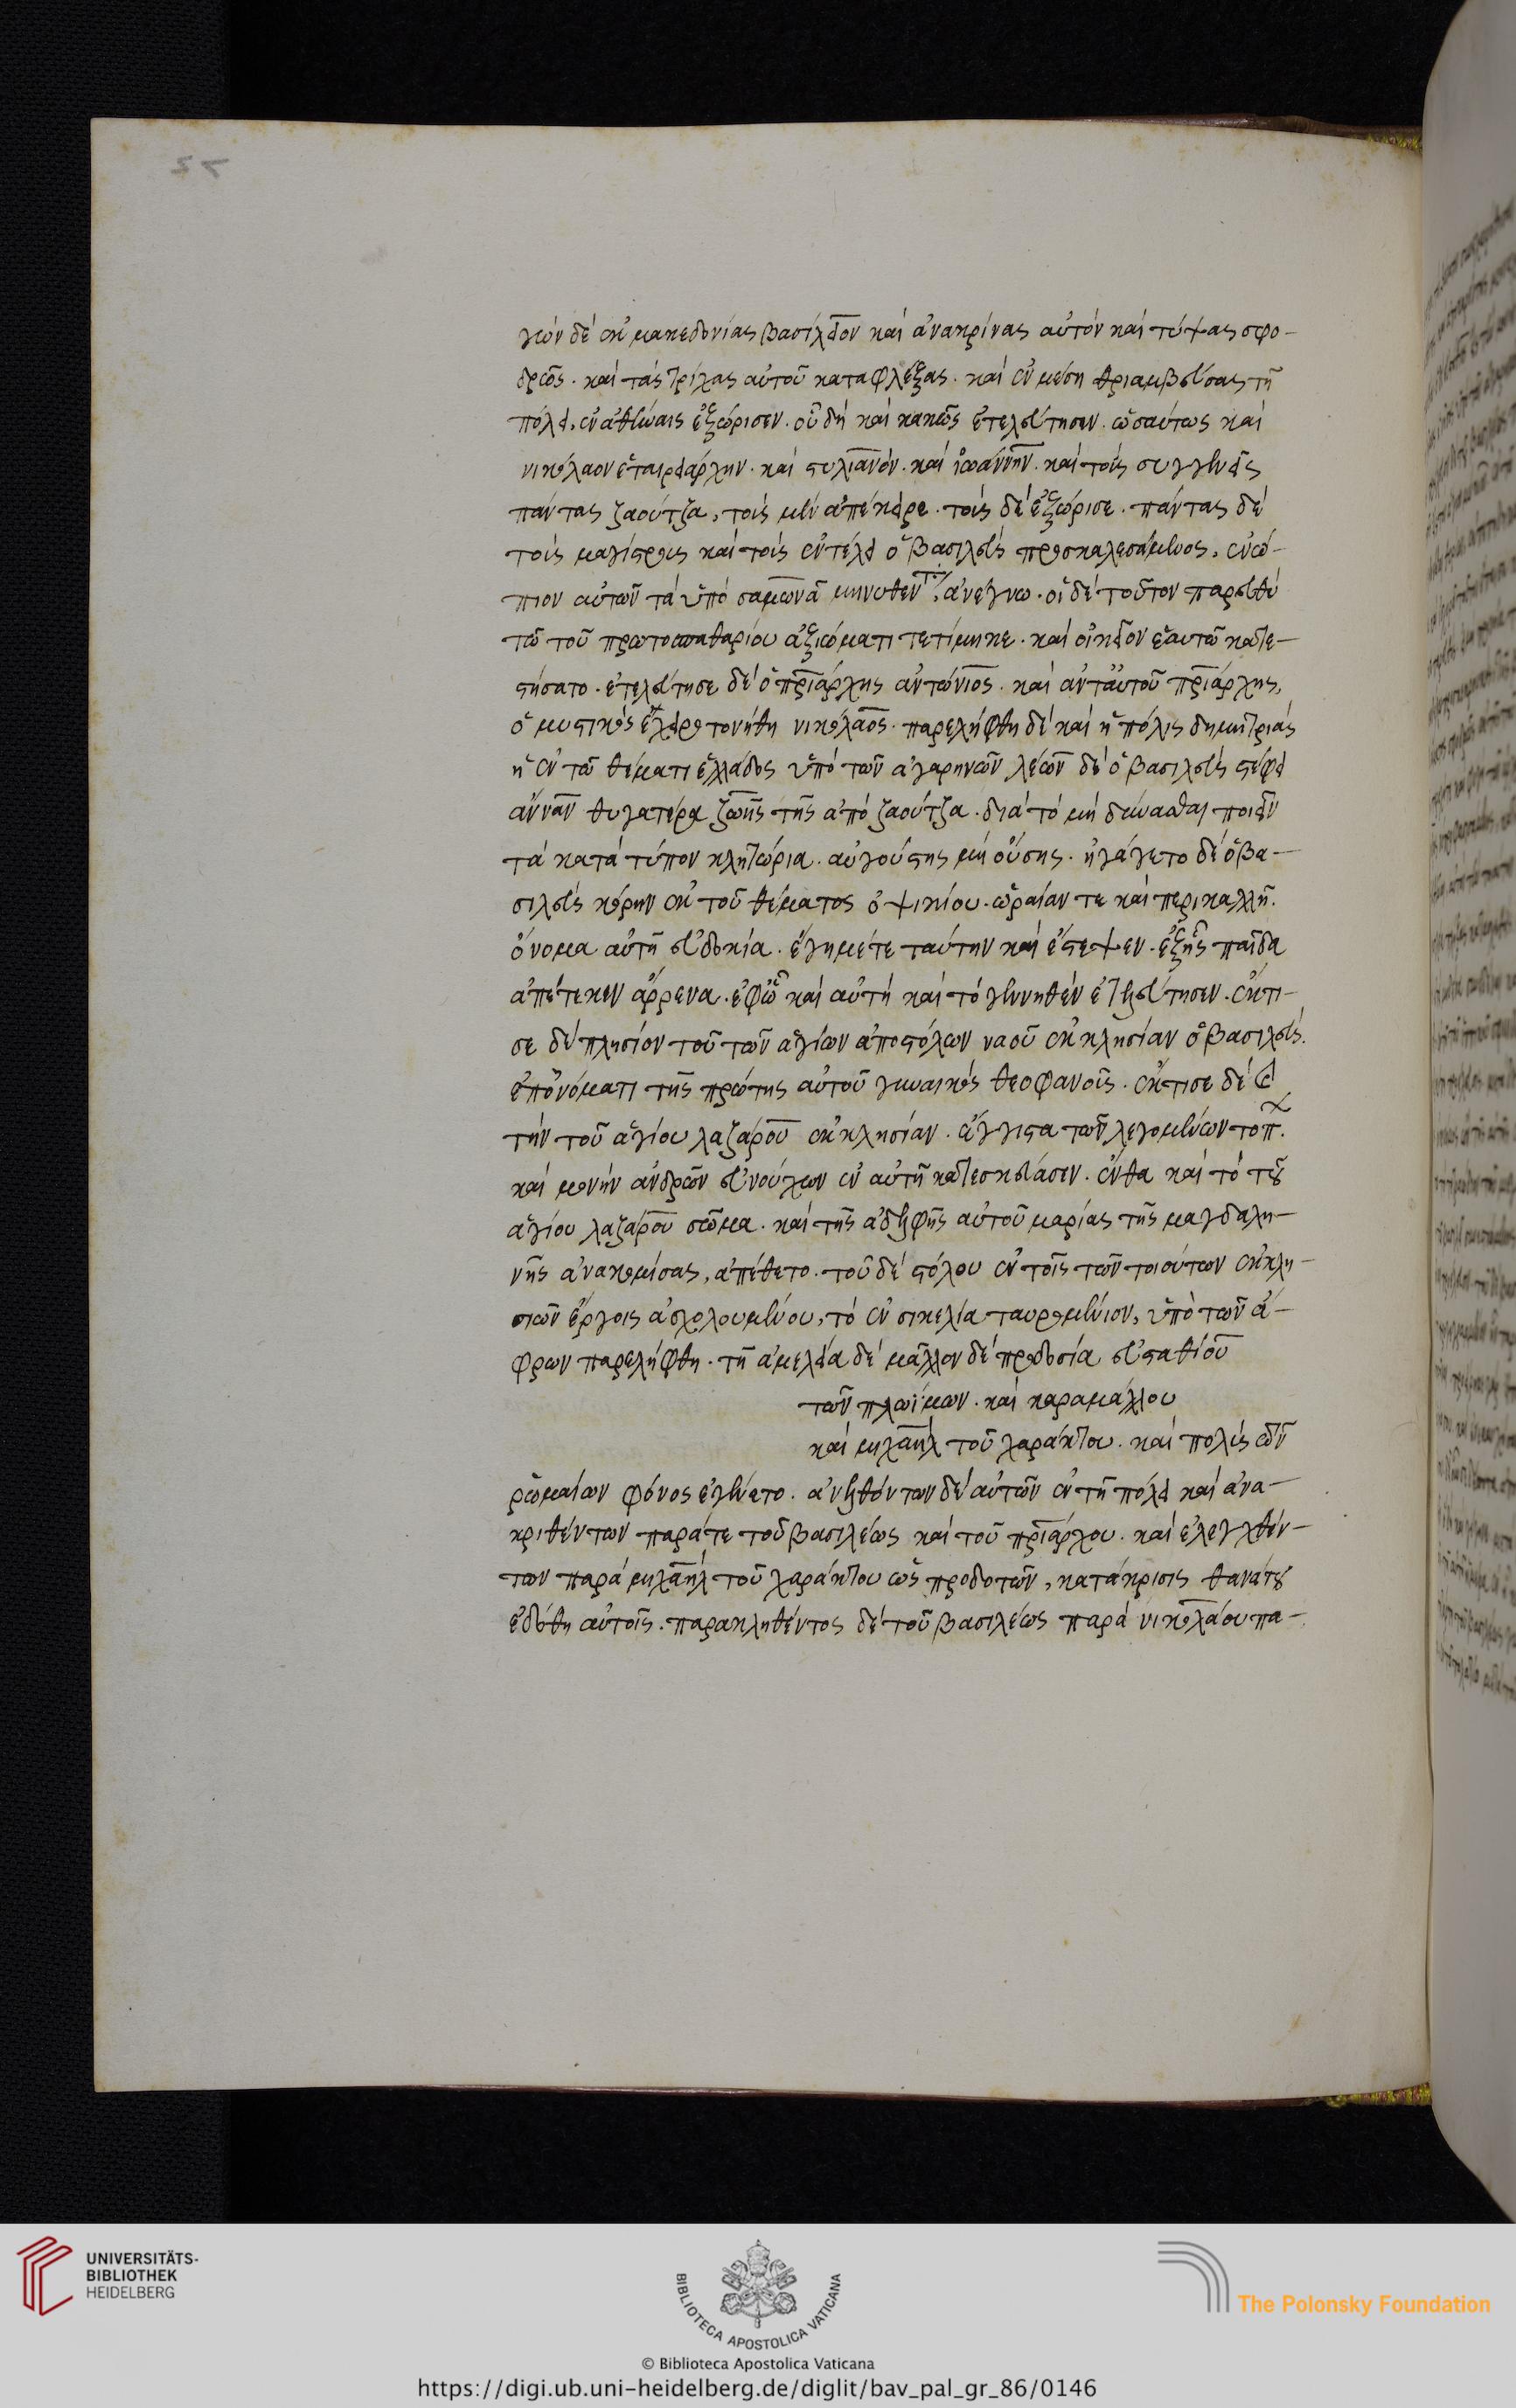 γὼν δὲ ἐκ μακεδονίας βασίλειον καὶ ἀνακρίνας αὐτὸν καὶ τύψας σφο-
δρῶς. καὶ τὰς τρίχας αὐτοῦ καταφλέξας. καὶ ἐν μέση θριαμβεύσας τῆ
πόλει, ἐν ἀθήναις ἐξώρισεν. οὗ δὴ καὶ κακῶς ἐτελεύτησεν. ὡσαύτως καὶ
νικόλαον ἑταιρειάρχην. καὶ στυλιανὸν. καὶ ἰωάννην. καὶ τοὺς συγγενεῖς
πάντας ζαούτζα, τοὺς μὲν ἀπέκειρε. τοὺς δὲ ἐξώρισε. πάντας δὲ
τοὺς μαγίστρους καὶ τοὺς ἐν τέλει ὁ βασιλεὺς προσκαλεσάμενος, ἐνώ-
πιον αὐτῶν τὰ ὑπὸ σαμωνᾶ μηνυθέντα, ἀνέγνω. οἱ δὲ τοῦτον παρευθὺ
τῶ τοῦ πρωτοσπαθαρίου ἀξιώματι τετίμηκε. καὶ οἰκεῖον ἑαυτῶ κατε-
στήσατο. ἐτελεύτησε δὲ ὁ πριάρχης ἀντώνιος. καὶ ἀντ αὐτοῦ πριάρχης,
ὁ μυστικὸς ἐχειροτονήθη νικόλαος. παρελήφθη δὲ καὶ ἡ πόλις δημητριὰς
ἡ ἐν τῶ θέματι ἑλλάδος ὑπὸ τῶν ἀγαρηνῶν λέων δὲ ὁ βασιλεὺς στέφει
ἄνναν θυγατέρα ζωῆς τῆς ἀπὸ ζαούτζα. διὰ τὸ μὴ δύνασθαι ποιεῖν
τὰ κατὰ τύπον κλητώρια. αὐγούστης μὴ οὔσης. ἠγάγετο δὲ ὁ βα-
σιλεὺς κόρην ἐκ τοῦ θέματος ὀψικίου. ὡραίαν τε καὶ περικαλλῆ.
ὄνομα αὐτῆ εὐδοκία. ἔγημέ τε ταύτην καὶ ἔστεψεν. ἐξ ἧς παῖδα
ἀπέτεκεν ἄρρενα. ἐφ ὧ καὶ αὐτὴ καὶ τὸ γεννηθὲν ἐτελεύτησεν. ἔκτι-
σε δὲ πλησίον τοῦ τῶν ἁγίων ἀποστόλων ναοῦ ἐκκλησίαν ὁ βασιλεὺς.
ἐπ ὀνόματι τῆς πρώτης αὐτοῦ γυναικὸς θεοφανοῦς. ἔκτισε δὲ καὶ
τὴν τοῦ ἁγίου λαζάρου ἐκκλησίαν. ἔγγιστα τῶν λεγομένων τόπ.
καὶ μονὴν ἀνδρῶν εὐνούχων ἐν αὐτῆ κατεσκεύασεν. ἔνθα καὶ τὸ τοῦ
ἁγίου λαζάρου σῶμα. καὶ τῆς ἀδελφῆς αὐτοῦ μαρίας τῆς μαγδαλη-
νῆς ἀνακομίσας, ἀπέθετο. τοῦ δὲ στόλου ἐν τοῖς τῶν τοιούτων ἐκκλη-
σιῶν ἔργοις ἀσχολουμένου, τὸ ἐν σικελία ταυρομένιον, ὑπὸ τῶν ἄ-
φρων παρελήφθη. τῆ ἀμελεία δὲ μᾶλλον δὲ προδοσία εὐσταθίου
τῶν πλωΐμων. καὶ καραμάλλου
καὶ μιχαὴλ τοῦ χαράκτου. καὶ πολὺς
ῥωμαίων φόνος ἐγένετο. ἀνελθόντων δὲ αὐτῶν ἐν τῆ πόλει καὶ ἀνα-
κριθέντων παρά τε τοῦ βασιλέως καὶ τοῦ πριάρχου. καὶ ἐλεγχθέν-
των παρὰ μιχαὴλ τοῦ χαράκτου ὡς προδοτῶν, κατάκρισις θανάτου
ἐδόθη αὐτοῖς. παρακληθέντος δὲ τοῦ βασιλέως παρὰ νικολάου πα-
UNIVERSITÄTS-
BIBLIOTHEK
HEIDELBERG
BIBLIOTECA APOSTOLICA VATICANA
The Polonsky Foundation
© Biblioteca Apostolica Vaticana
https://digi.ub.uni-heidelberg.de/diglit/bav_pal_gr_86/0146